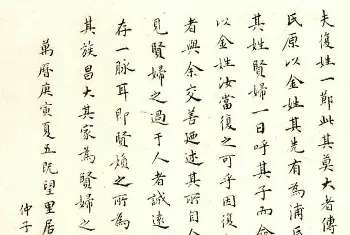 夫復姓一節此其莫大者傳
民原以金姓其先有為浦氏
其姓賢婦一日呼其子而命
以金姓汝當復之可乎因復
者與余交善廼述其所自余
見賢婦之過于人者誠遠
存一脉耳即賢嬪之所為
其族昌大其家為賢婦之
萬曆庚寅夏五既望里居
仲子